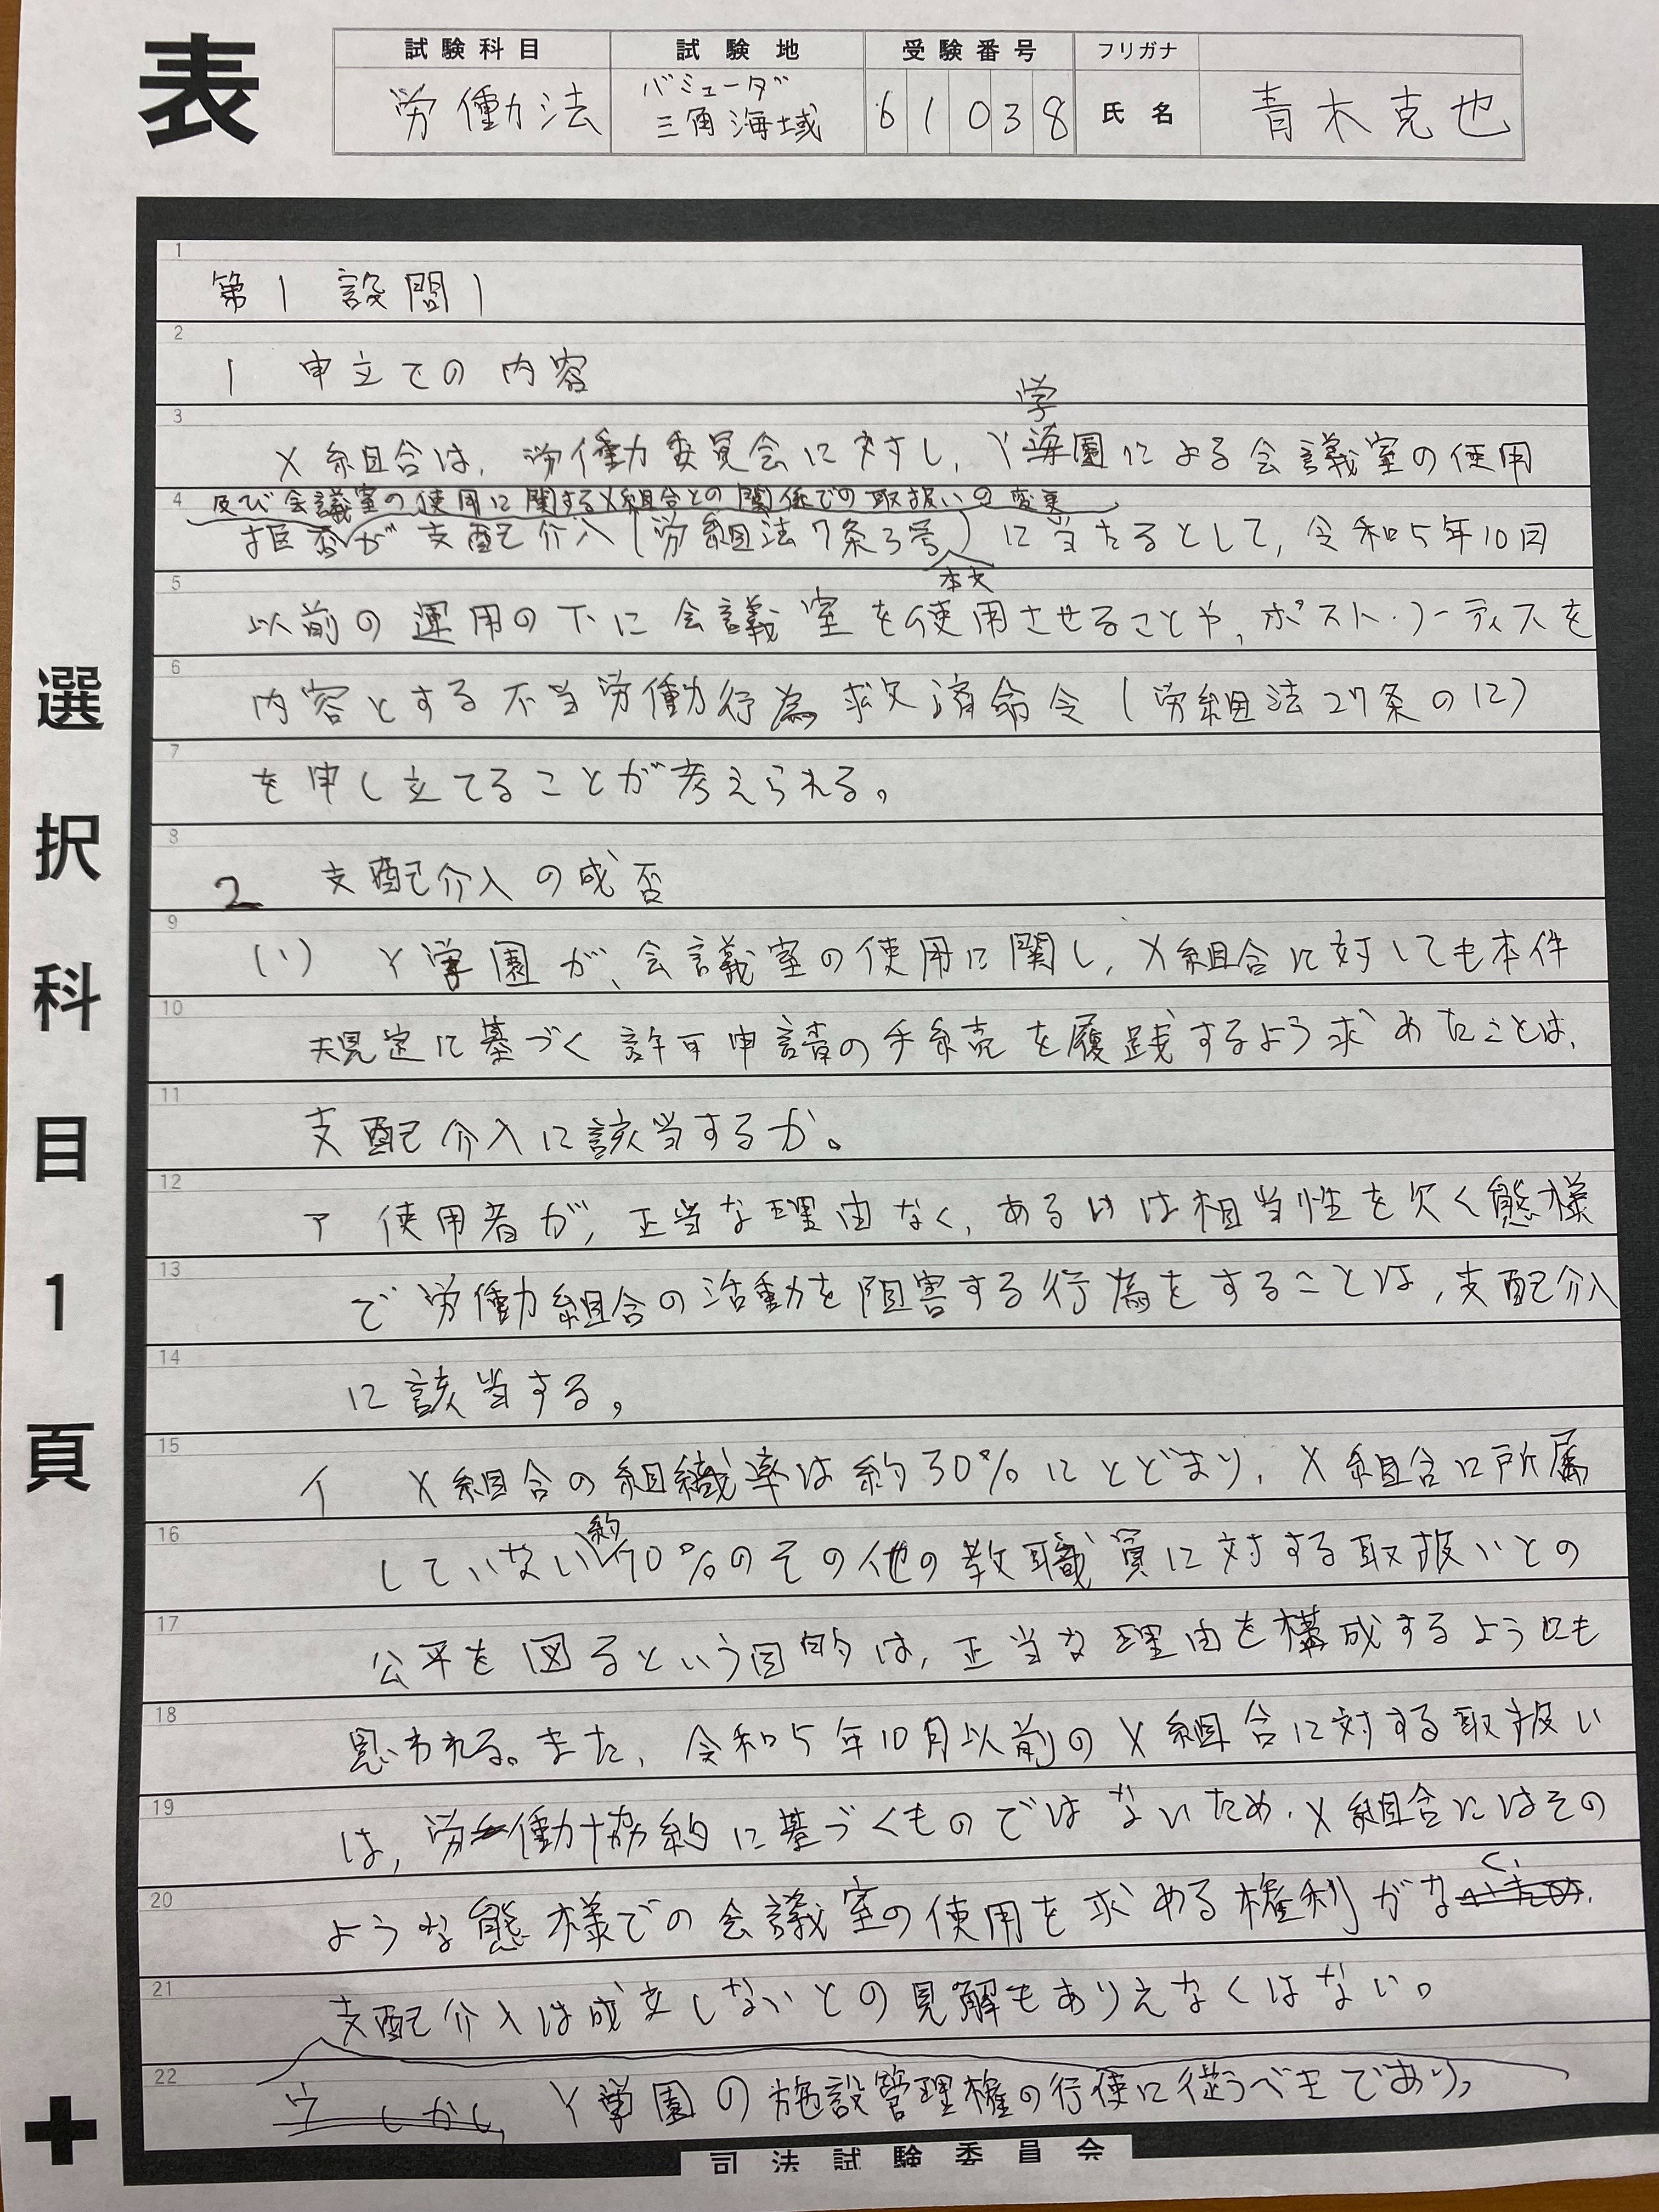 表
試験科目
試験地
受験番号
フリガナ
労働法
バミューダ
三角海域
61038
氏名
青木克也
選択科目1頁
1
第1 設問1
2
1 申立ての内容
3
学
X組合は、労働委員会に対し、Y園による会議室の使用
4
及び会議室の使用に関するX組合との関係での取扱いの変更
拒否が支配介入(労組法7条3号)に当たるとして、令和5年10月
5
本文
以前の運用の下に会議室を使用させることや、ポスト・ノーティスを
6
内容とする不当労働行為救済命令(労組法27条の12)
7
を申し立てることが考えられる。
8
2 支配介入の成否
9
(1) Y学園が、会議室の使用に関し、X組合に対しても本件
10
規定に基づく許可申請の手続を履践するよう求めたことは、
11
支配介入に該当するか。
12
ア 使用者が、正当な理由なく、あるいは相当性を欠く態様
13
で労働組合の活動を阻害する行為をすることは、支配介入
14
に該当する。
15
イ X組合の組織率は約30%にとどまり、X組合に所属
16
約
していない70%のその他の教職員に対する取扱いとの
17
公平を図るという目的は、正当な理由を構成するようにも
18
思われる。また、令和5年10月以前のX組合に対する取扱い
19
は、労働協約に基づくものではないため、X組合にはその
20
く、
ような態様での会議室の使用を求める権利がな
21
支配介入は成立しないとの見解もありえなくはない。
22
ウ しかし、Y学園の施設管理権の行使に従うべきであり、
司法試験委員会